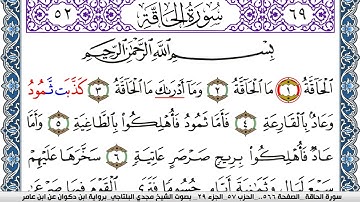 ٦٩ سُورَةُ الْحَاقَّةِ ٥٢
بِسْمِ اللَّهِ الرَّحْمَٰنِ الرَّحِيمِ
الْحَاقَّةُ ١ مَا الْحَاقَّةُ ٢ وَمَا أَدْرَىٰكَ مَا الْحَاقَّةُ ٣ كَذَّبَت ثَّمُودُ
وَعَادٌ بِالْقَارِعَةِ ٤ فَأَمَّا ثَمُودُ فَأُهْلِكُوا بِالطَّاغِيَةِ ٥ وَأَمَّا
عَادٌ فَأُهْلِكُوا بِرِيحٍ صَرْصَرٍ عَاتِيَةٍ ٦ سَخَّرَهَا عَلَيْهِمْ
سَبْعَ لَيَالٍ وَثَمَٰنِيَةَ أَيَّامٍ حُسُومًا فَتَرَى الْقَوْمَ فِيهَا
سورة الحاقة _الصفحة ٥٦٦_ الحزب ٥٧ _الجزء ٢٩ . بصوت الشيخ مجدي البلتاجي . برواية ابن ذكوان عن ابن عامر